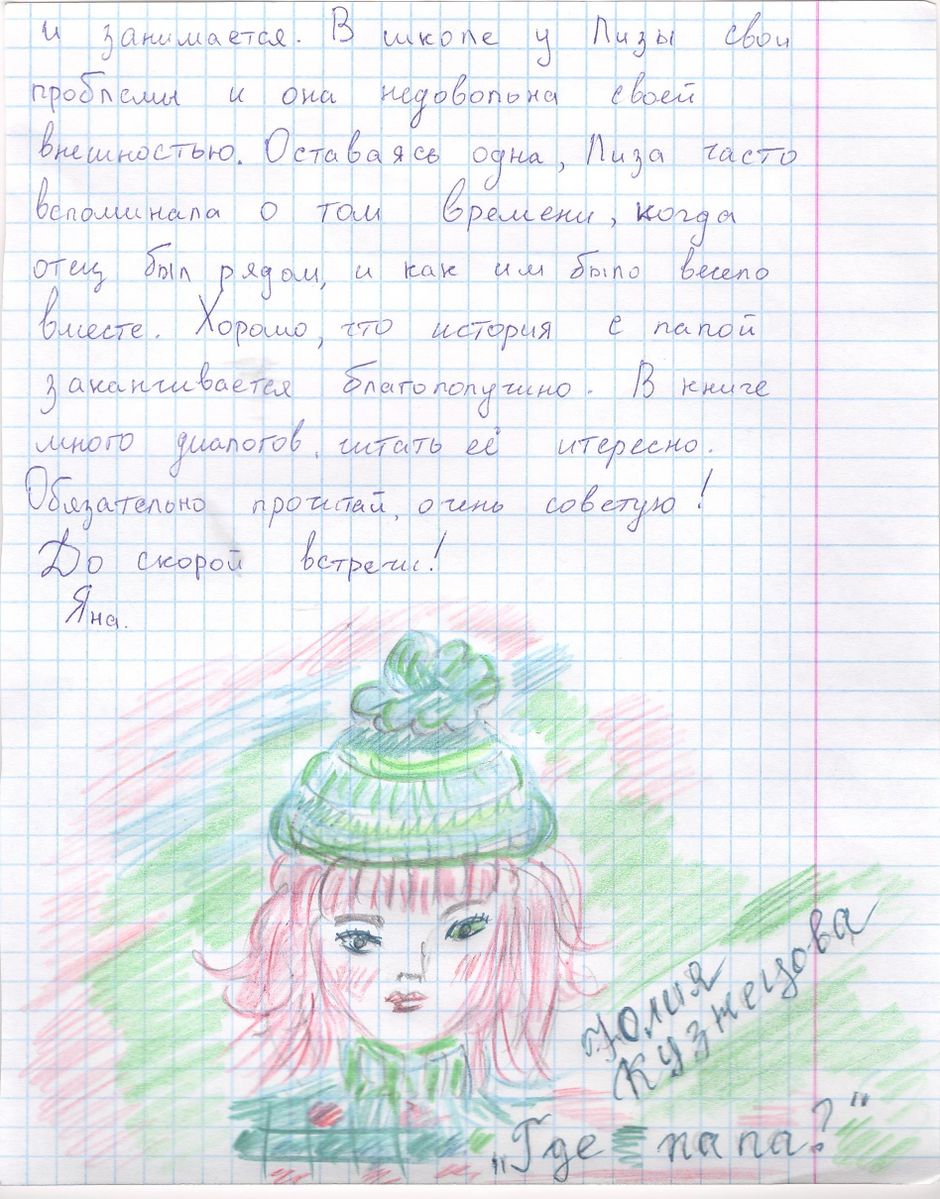 и занимается. В школе у Лизы свои
проблемы и она недовольна своей
внешностью. Оставаясь одна, Лиза часто
вспоминала о том времени, когда
отец был рядом, и как им было весело
вместе. Хорошо, что история с папой
заканчивается благополучно. В книге
много диалогов, читать её итересно.
Обязательно прочитай, очень советую!
До скорой встречи!
Яна.
Юлия
Кузнецова
"Где папа?"